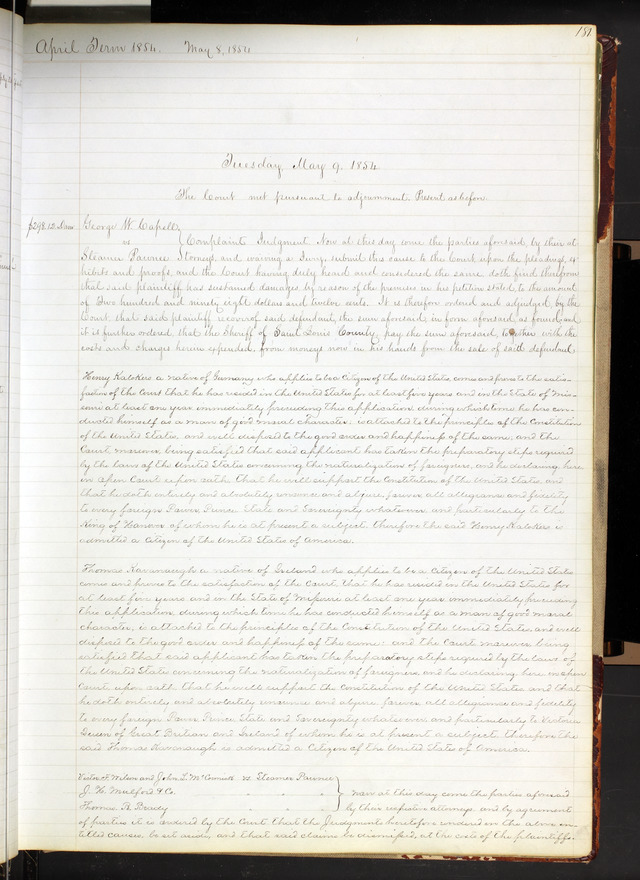 181
April Term 1854. May 8, 1854
Tuesday May 9. 1854
The Court met pursuant to adjournment. Present as before.
$298.12. Dam
George W. Capell
vs
Steamer Pawnee
Complaint Judgment. Now at this day come the parties aforesaid, by their at
torneys, and waiving a Jury, submit this cause to the Court upon the pleadings, ex
hibits and proofs, and the Court having duly heard and considered the same doth find therefrom
that said plaintiff has sustained damages by reason of the premises in his petition stated to the amount
of Two hundred and ninety eight dollars and twelve cents. It is therefore ordered and adjudged by the
Court that said plaintiff recover of said defendant, the sum aforesaid, in form aforesaid as found, and
it is further ordered, that the Sheriff of Saint Louis County, pay the sum aforesaid, together with the
costs and charges herein expended, from moneys now in his hands from the sale of said defendant,
Henry a native of Germany who applies to be a Citizen of the United States, comes and proves to the satis-
faction of the Court that he has resided in the United States for at least five years and in the State of Mis-
souri at least one year immediately preceeding this application, during which time he has con-
ducted himself as a man of good moral character, is attached to the principles of the Constitution
of the United States, and well disposed to the good order and happiness of the same, and the
Court moreover, being satisfied that said applicant has taken the preparatory steps required
by the laws of the United States concerning the naturalization of foreigners, and he declaring here
in open Court upon oath that he will support the Constitution of the United States, and
that he doth entirely and absolutely renounce and abjure forever all allegiance and fidelity
to every foreign Power, Prince State and Sovereignty whatsoever, and particularly to the
King of Hanover of whom he is at present a subject. therefore the said Henry is
admitted a Citizen of the United States of America.
Thomas Kavanaugh a native of Ireland who applies to be a Citizen of the United States
comes and proves to the satisfaction of the Court, that he has resided in the United States for
at least five years and in the State of Missouri at least one year immediately preceeding
this application, during which time he has conducted himself as a man of good moral
character, is attached to the principles of the Constitution of the United States, and well
disposed to the good order and happiness of the same: and the Court moreover being
satisfied that said applicant has taken the preparatory steps required by the laws of
the United States concerning the naturalization of foreigners, and he declaring here in open
Court upon oath that he will support the Constitution of the United States and that
he doth entirely and absolutely renounce and abjure forever all allegiance and fidelity
to every foreign Power Prince State and Sovereignty whatsoever, and particularly to Victoria
Queen of Great Britian and Ireland of whom he is at present a subject, therefore the
said Thomas Kavanaugh is admitted a Citizen of the United States of America.
F. Wilson and John L. McCormick vs. Steamer Pawnee
J. H. Mulford & Co.
Thomas B. Brady
now at this day come the parties aforesaid
by their respective attorneys, and by agreement
of parties it is ordered by the Court that the Judgments heretofore rendered in the above en-
titled causes, be set aside, and that said claims be dismissed, at the costs of the plaintiffs.